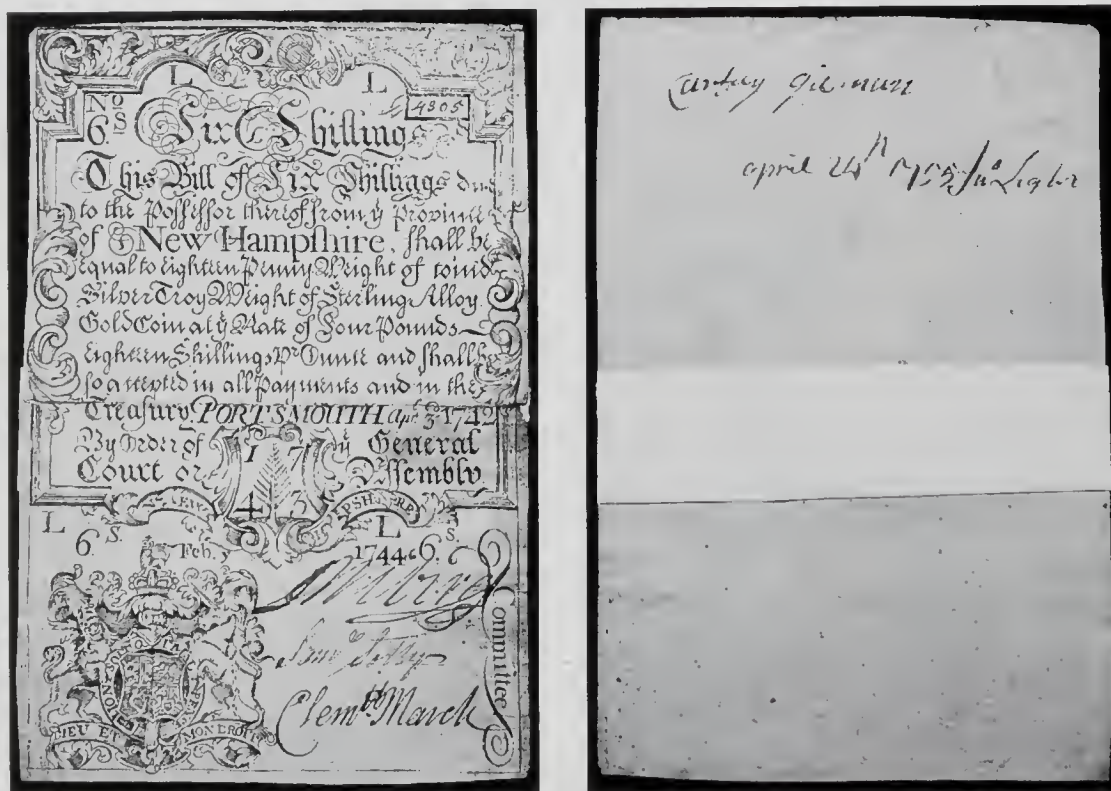 L L
No 4805
6.S Six Shillings
This Bill of Six Shillings due
to the Possessor thereof from ye Province
of New Hampshire, shall be
equal to eighteen Penny Weight of coind
Silver Troy Weight of Sterling Alloy
Gold Coin at ye Rate of Four Pounds
eighteen Shillings Pr Ounce and shall be
so accepted in all Payments and in the
Treasury PORTSMOUTH Apr. 3d 1742
By Order of 1 7 ye General
Court or 4 3 Assembly
L L
6.S Feb. 1744 6.S
Clemt March
Committee
DIEU ET MON DROIT
Gilman
april 24th